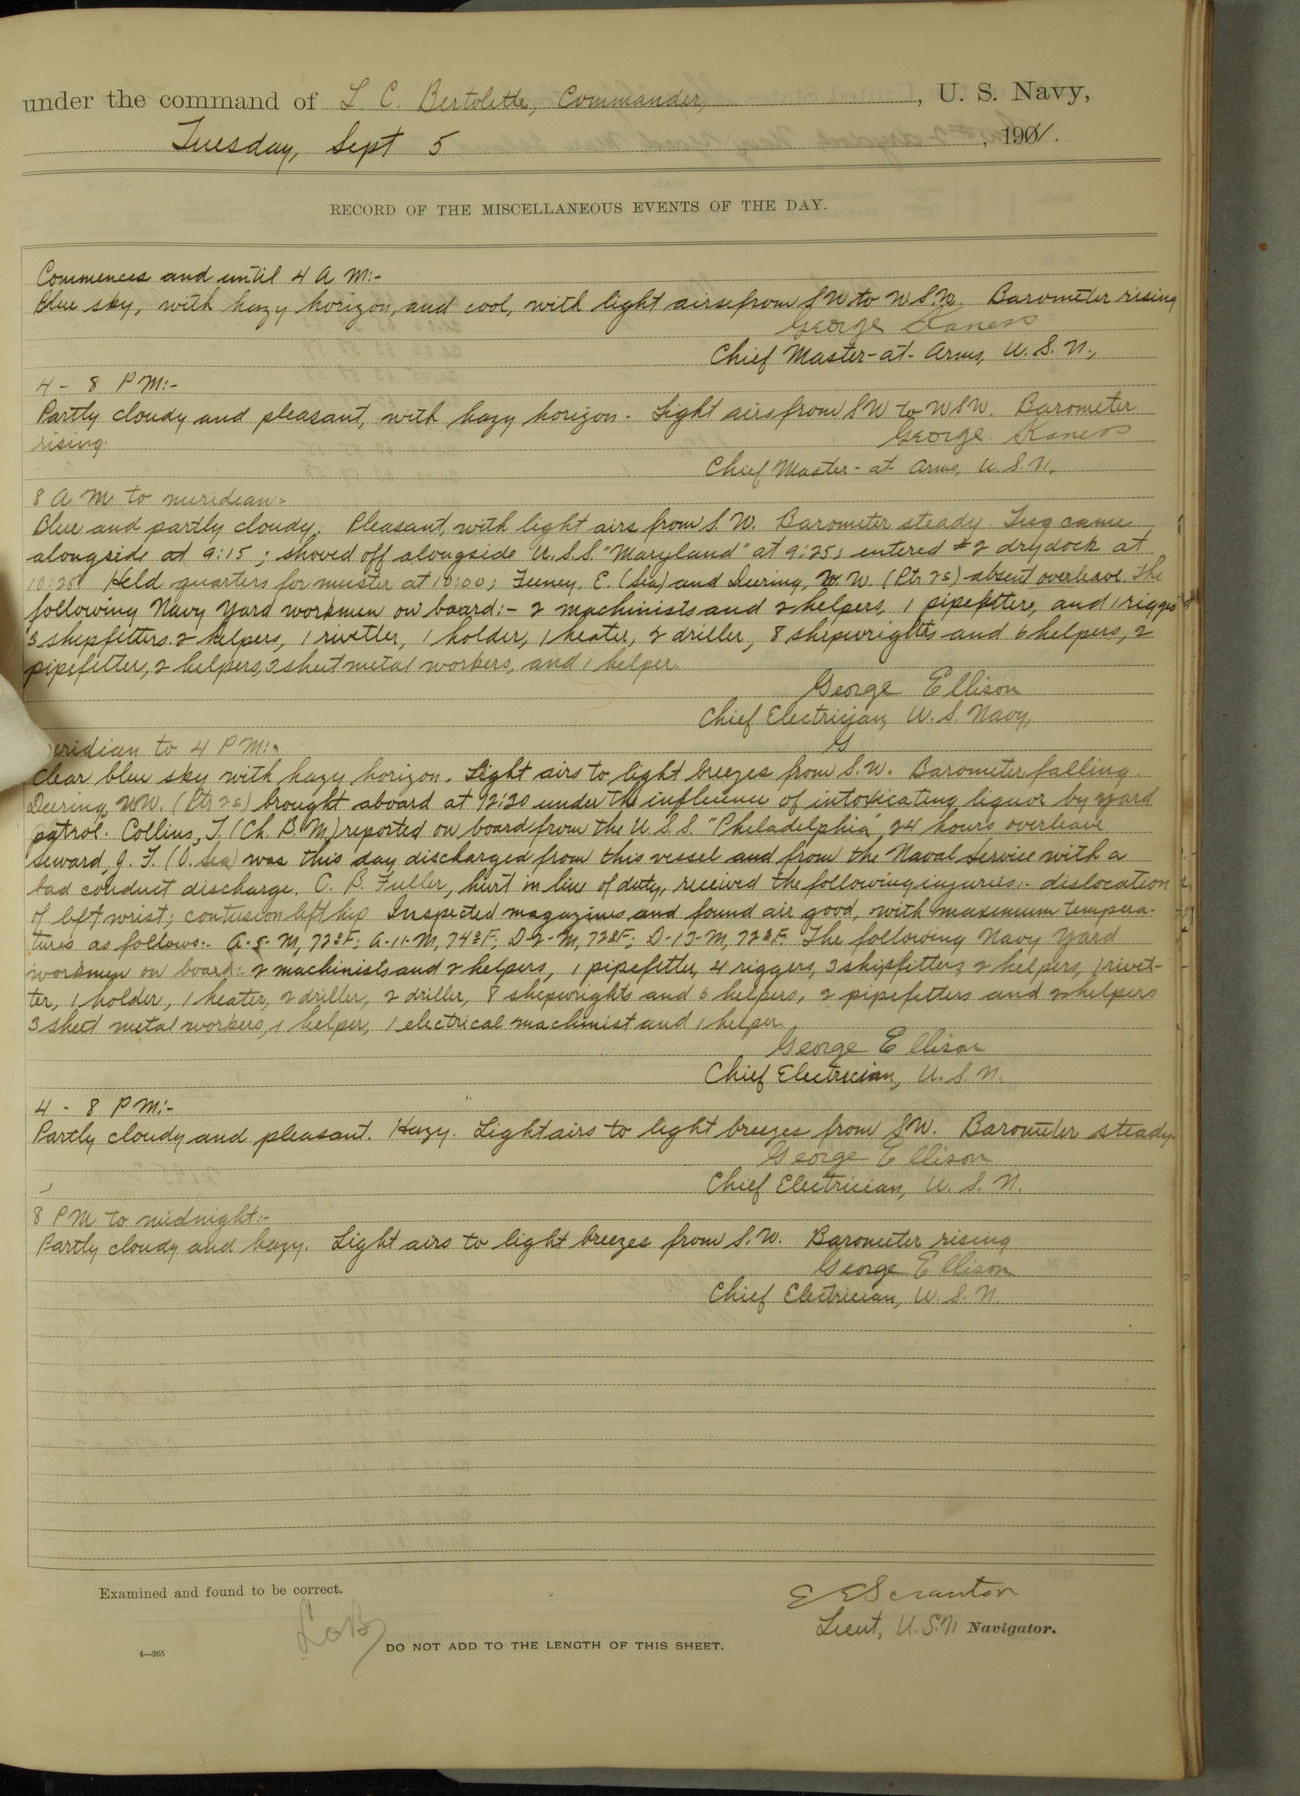 under the command of L C. Bertolette, Commander, , U. S. Navy,
Tuesday, Sept 5 , 1901.
RECORD OF THE MISCELLANEOUS EVENTS OF THE DAY.
Commences and until 4 A M:-
Blue sky, with hazy horizon, and cool, with light airs from SW to WSW. Barometer rising
George
Chief Master-at-Arms, U. S. N.,
4 - 8 P M:-
Partly cloudy and pleasant, with hazy horizon. Light airs from SW to WSW. Barometer
rising. George
Chief Master-at-Arms, U. S. N.
8 A M to meridian:-
Blue and partly cloudy. Pleasant, with light airs from S. W. Barometer steady Tug came
alongside at 9:15; shoved off alongside U.S.S. "Maryland" at 9:25; entered #2 drydock at
10:25 Held quarters for muster at 10:00; Feeney, E. (Sea) and Deering, W. W. (Ptr 2c) absent overleave. The
following Navy Yard workmen on board:- 2 machinists and 2 helpers, 1 pipefitters, and 1 rigger
3 shipfitters 2 helpers, 1 rivetter, 1 holder, 1 heater, 2 driller, 8 shipwrights and 6 helpers, 2
pipefitter, 2 helpers, 3 sheet metal workers, and 1 helper.
George Ellison
Chief Electrician, U. S. Navy,
eridian to 4 P M:-
Clear blue sky with hazy horizon. Light airs to light breezes from S. W. Barometer falling.
Deering, W.W. (Ptr 2c) brought aboard at 12:30 under the influence of intoxicating liquor by yard
patrol. Collins, J. (Ch. B. M) reported on board from the U. S. S. "Philadelphia", 24 hours overleave
Seward, J. F. (O. Sea) was this day discharged from this vessel and from the Naval Service with a
bad conduct discharge. C. B. Fuller, hurt in line of duty, received the following injuries:- dislocation
of left wrist; contusion left hip Inspected magazines and found air good, with maximum tempera-
tures as follows:- A-8-M, 72°F; A-11-M, 74°F; D-2-M, 72°F; D-13-M, 72°F. The following Navy Yard
workmen on board:- 2 machinists and 2 helpers, 1 pipefitter, 4 riggers, 3 shipfitters, 2 helpers, 1 rivet-
ter, 1 holder, 1 heater, 2 driller, 2 driller, 8 shipwrights and 6 helpers, 2 pipefitters and 2 helpers
3 sheet metal workers, 1 helper, 1 electrical machinist and 1 helper.
George Ellison
Chief Electrician, U. S. N.
4 - 8 P M:-
Partly cloudy and pleasant. Hazy. Light airs to light breezes from SW. Barometer steady.
George Ellison
Chief Electrician, U. S. N.
8 P M to midnight:-
Partly cloudy and hazy. Light airs to light breezes from S. W. Barometer rising
George Ellison
Chief Electrician, U. S. N.
Examined and found to be correct.
E E Scranton
LCB
Lieut, U.S.N Navigator.
DO NOT ADD TO THE LENGTH OF THIS SHEET.
4—265